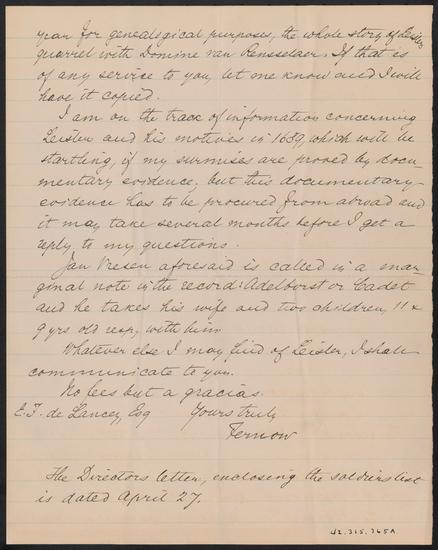 year for genealogical purposes, the whole story of Leisler
quarrel with Domine van Rensselaer. If that is
of any service to you, let me know and I will
have it copied.
I am on the track of information concerning
Leisler and his motives in 1689, which will be
startling, if my surmises are proved by docu-
mentary evidence, but this documentary
evidence has to be procured from abroad and
it may take several months before I get a
reply to my questions.
Jan aforesaid is called in a mar-
ginal note in the record: Adelborst or Cadet
and he takes his wife and two children, 11 &
9 yrs old resp, with him
Whatever else I may find of Leisler, I shall
communicate to you.
No fees but a gracias.
E. F. de Lancey, Esq Yours truly
Fernow
The Directors letter, enclosing the soldiers list
is dated April 27.
42.315.765A